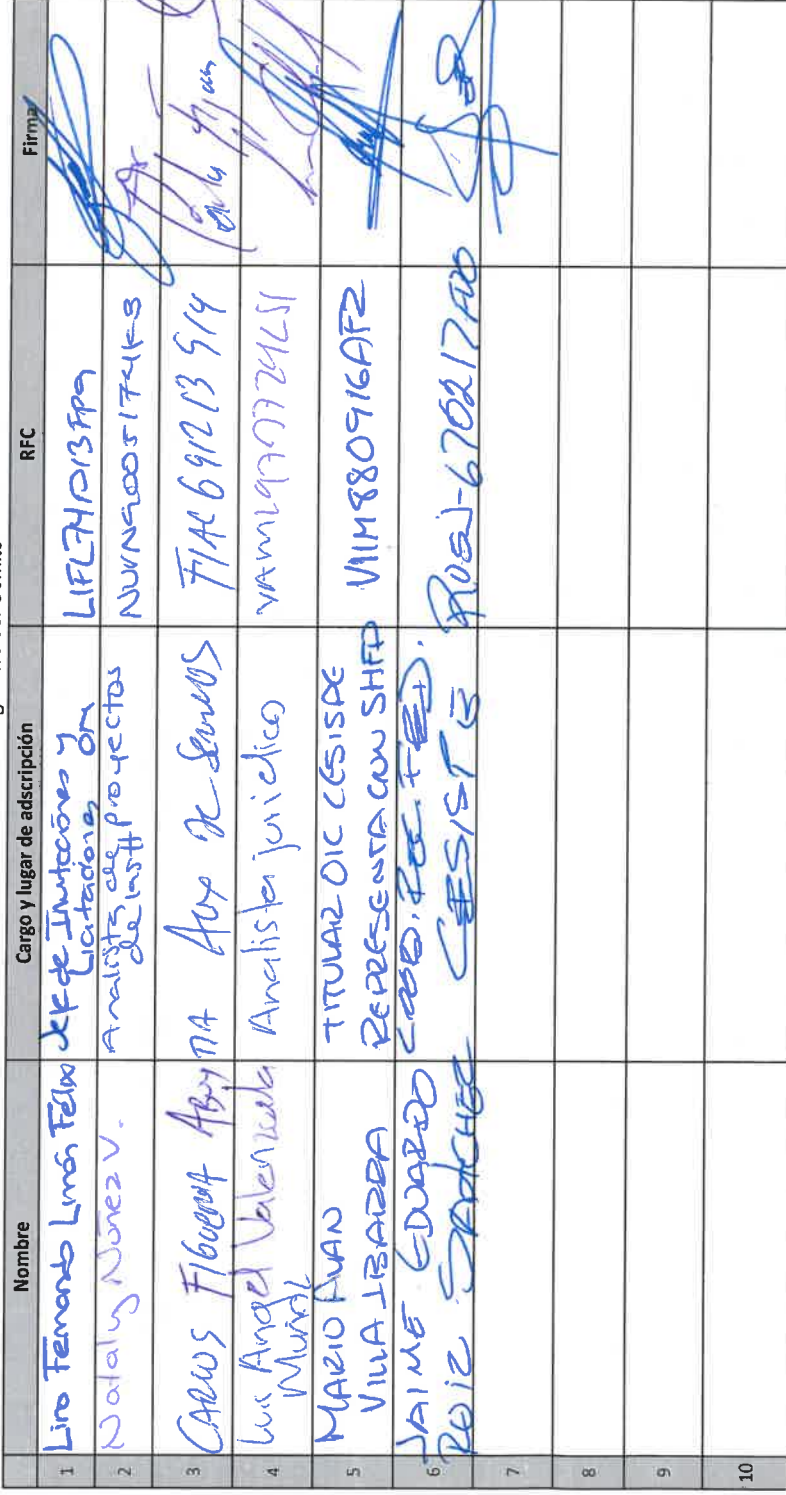 Nombre Cargo y lugar de adscripción RFC Firma
1 Lino Fernando Limón Félix Jefe de Invitaciones y
Licitaciones OM LIFL741213FP9
2 Nataly Núñez V. Analista de proyectos
de las NUVN9005174K8
3 CARLOS FIGUEROA Aux de Servicios FIAC691213
4 Luis Angel Valenzuela
Muñoz Analista juridico VAML970724LS1
5 MARIO ALAN
VILLA IBARRA TITULAR OIC CESISPE
REPRESENTACION SHFP VIIM880916AF2
6 JAIME EDUARDO
RUIZ SANCHEZ COORD. REC. FED.
RUSJ-670217
7
8
9
10